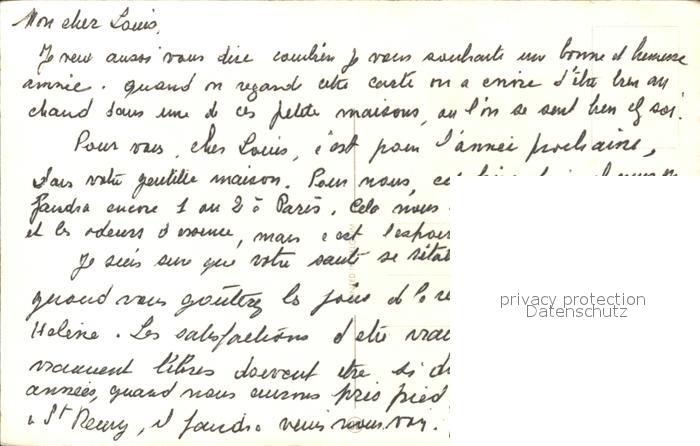 Mon cher Louis,
Je veux aussi vous dire combien je vous souhaite une bonne et heureuse
année. quand on regarde cette carte on a envie d'être bien au
chaud dans une de ces petite maisons, où l'on se sent bien chez soi.
Pour vous, cher Louis, c'est pour l'année prochaine,
dans votre gentille maison. Pour nous,
faudra encore 1 ou 2 à Paris. Cela nous
et les odeurs d'essence, mais c'est l'espoir
Je suis sure que votre santé se rétab
quand vous goûterez les joies de la re
Helène. Les satisfactions d'etre vrai
vraiment libres doivent etre si d
années, quand nous aurons pris pied
à St Remy, il faudra venir nous voir.
privacy protection
Datenschutz